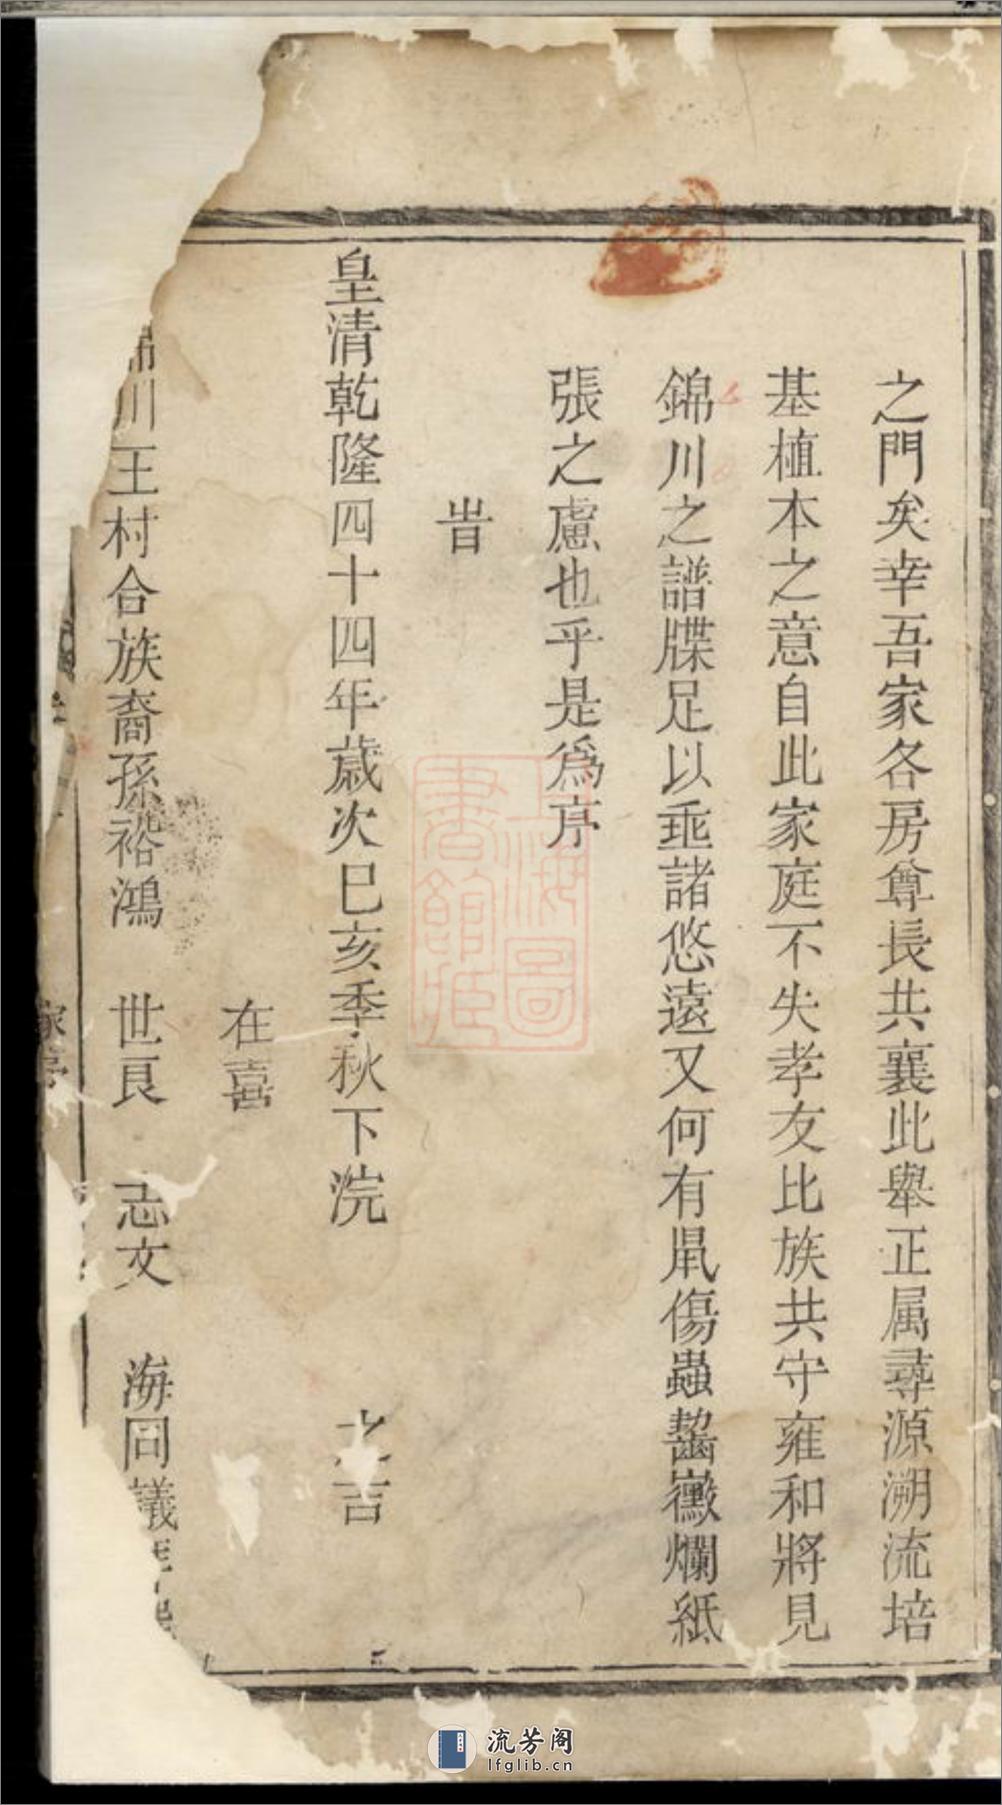 之門矣幸吾家各房尊長共襄此舉正属尋源溯流培
基植本之意自此家庭不失孝友比族共守雍和將見
錦川之譜牒足以垂諸悠遠又何有鼡傷蟲齧黴爛紙
張之慮也乎是爲序
旹
皇清乾隆四十四年歳次巳亥季秋下浣 之吉
在喜
川王村合族裔孫裕鴻 世良 志文 海同議
家序
上海圖書館藏
流芳阁
lfglib.cn